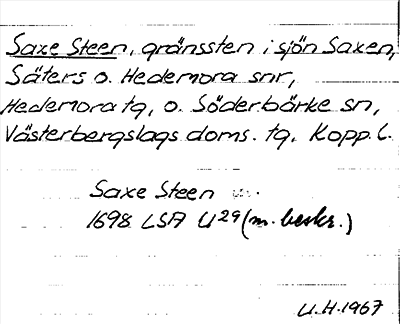 Saxe Steen, gränssten i sjön Saxen,
Säters o. Hedemora snr,
Hedemora tg, o. Söderbärke sn,
Västerbergslags doms. tg, Kopp. l.
Saxe Steen
1698 LSA U29 (m. beskr.)
U.H. 1967